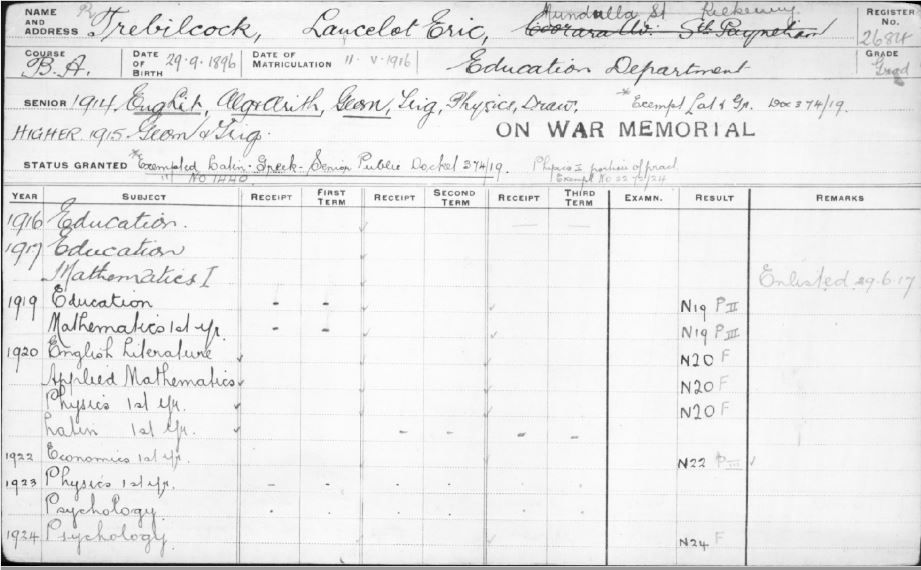 NAME AND ADDRESS Trebilcock, Lancelot Eric, Mundulla St Kilkenny
Coorara Av. St Peyneham
REGISTER NO. 2684
COURSE B.A. DATE OF BIRTH 29-9-1896 DATE OF MATRICULATION 11-V-1916 Education Department GRADE Grad
SENIOR 1914 English, Alg & Arith, Geom, Trig, Physics, Draw. *Exempt Lat & Gr. Doc 374/19.
HIGHER 1915 Geom & Trig. ON WAR MEMORIAL
STATUS GRANTED *Exempted Latin-Greek-Senior Public Docket 374/19. Physics I portion of prac
" NO 1440 Exempt No 22
YEAR SUBJECT RECEIPT FIRST TERM RECEIPT SECOND TERM RECEIPT THIRD TERM EXAMN. RESULT REMARKS
1916 Education.
1917 Education
Mathematics I Enlisted 29.6.17
1919 Education - - N19 P II
Mathematics 1st yr. - - N19 P III
1920 English Literature ✓ N20 F
Applied Mathematics ✓ N20 F
Physics 1st yr. ✓ N20 F
Latin 1st yr. ✓ - - - -
1922 Economics 1st yr. N22 P III ✓
1923 Physics 1st yr. - - - - - -
Psychology. - - - - - -
1924 Psychology N24 F